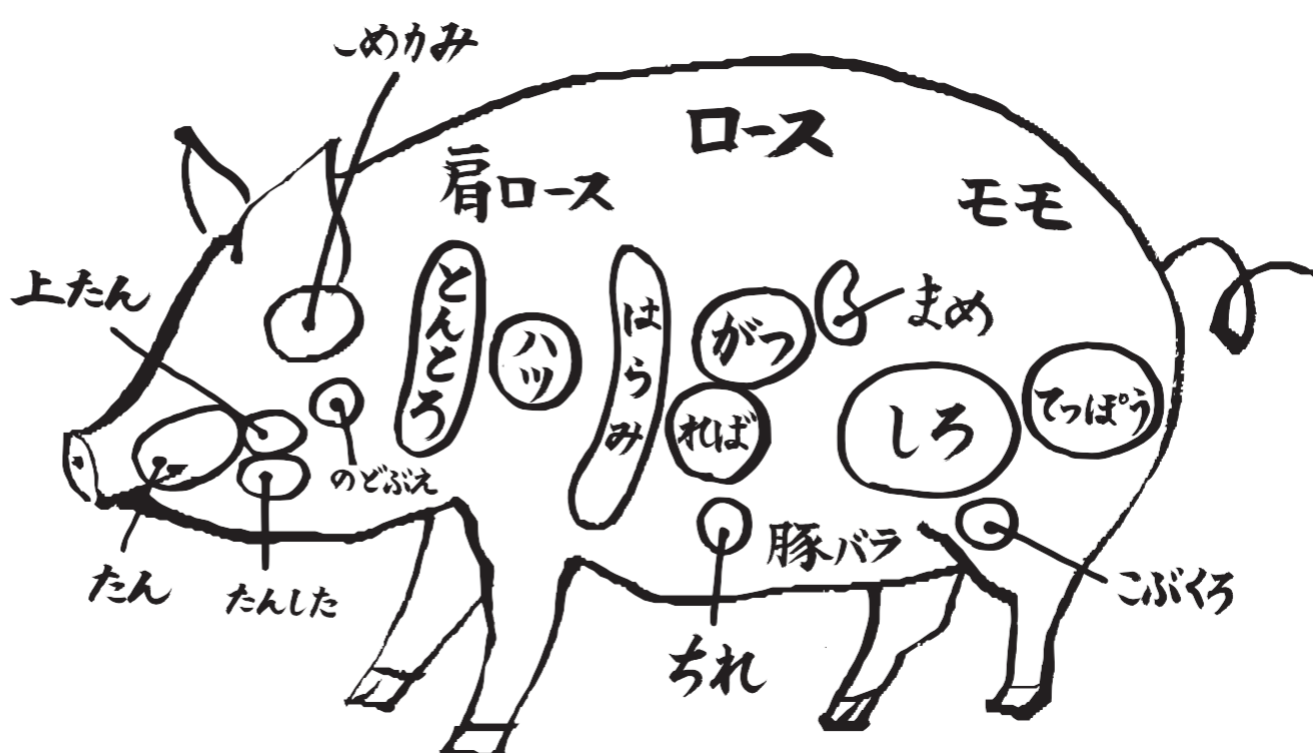 こめかみ
ロース
肩ロース
モモ
上たん
とんとろ
ハツ
はらみ
がつ
まめ
れば
しろ
てっぽう
のどぶえ
たん
たんした
豚バラ
ちれ
こぶくろ